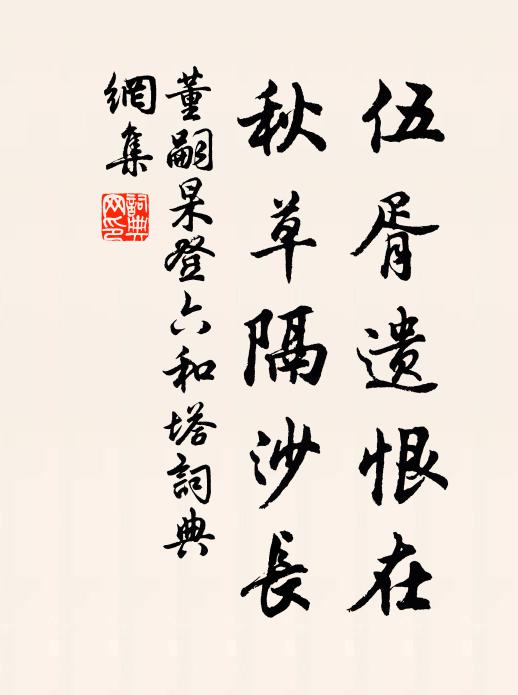 伍胥遗恨在
秋草隔沙長
董嗣杲登六和塔詞典
網集
詞典网印